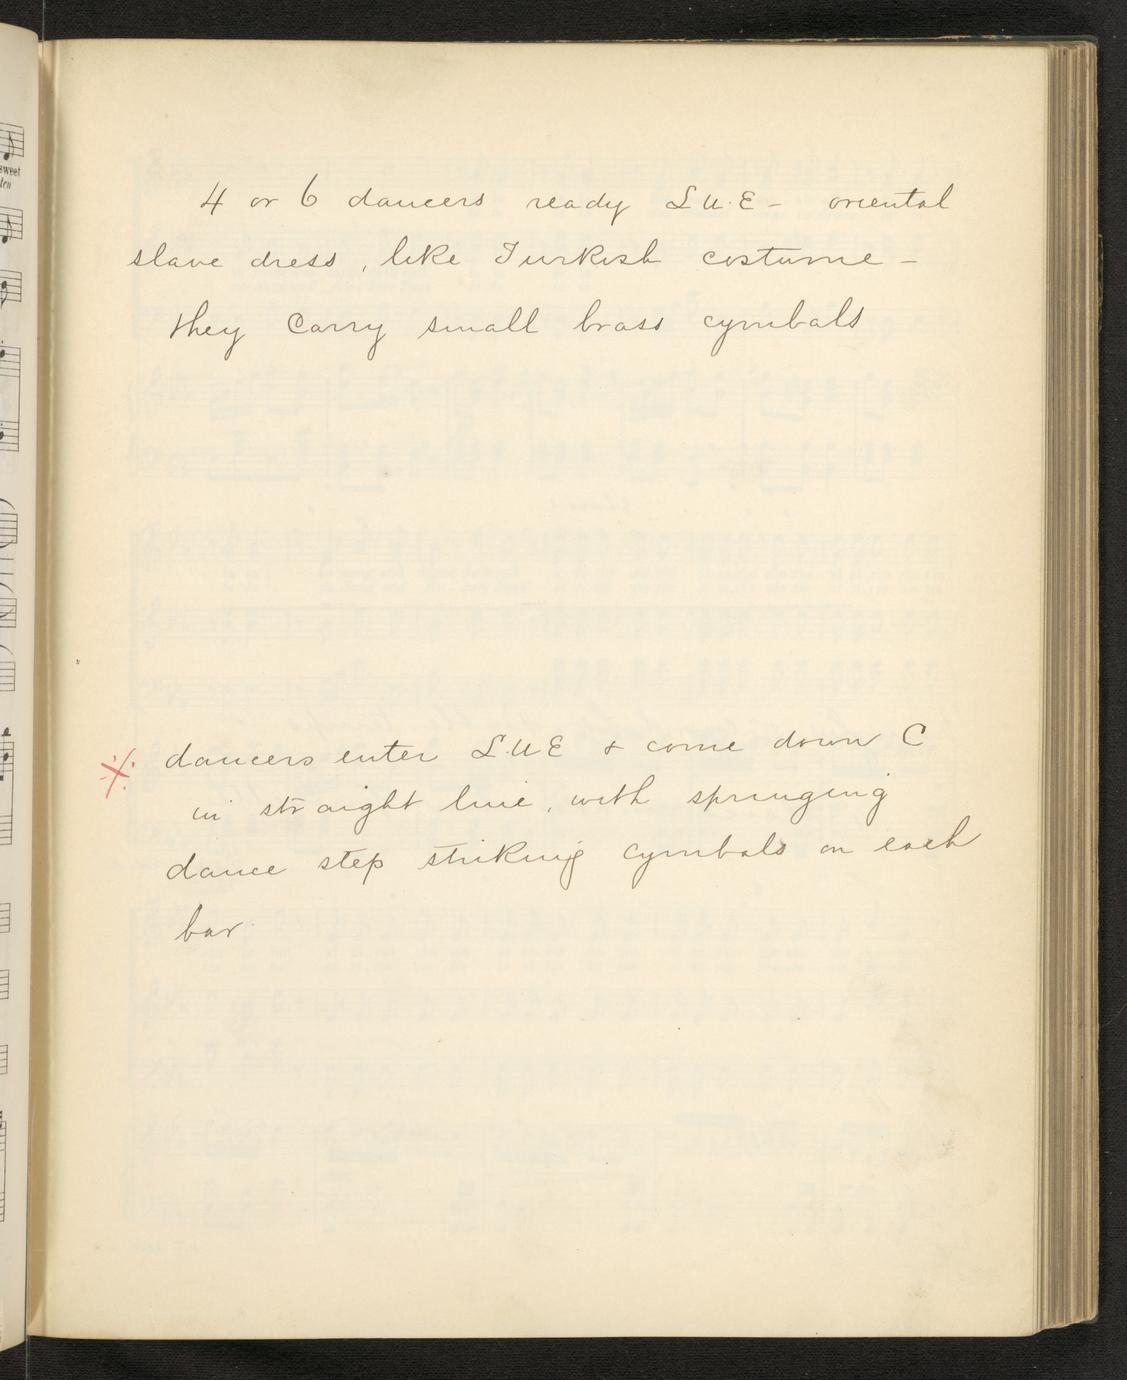 sweet
ten
4 or 6 dancers ready L.U.E - oriental
slave dress, like Turkish costume -
they carry small brass cymbals
※ dancers enter L.U.E & come down C
in straight line, with springing
dance step striking cymbals on each
bar